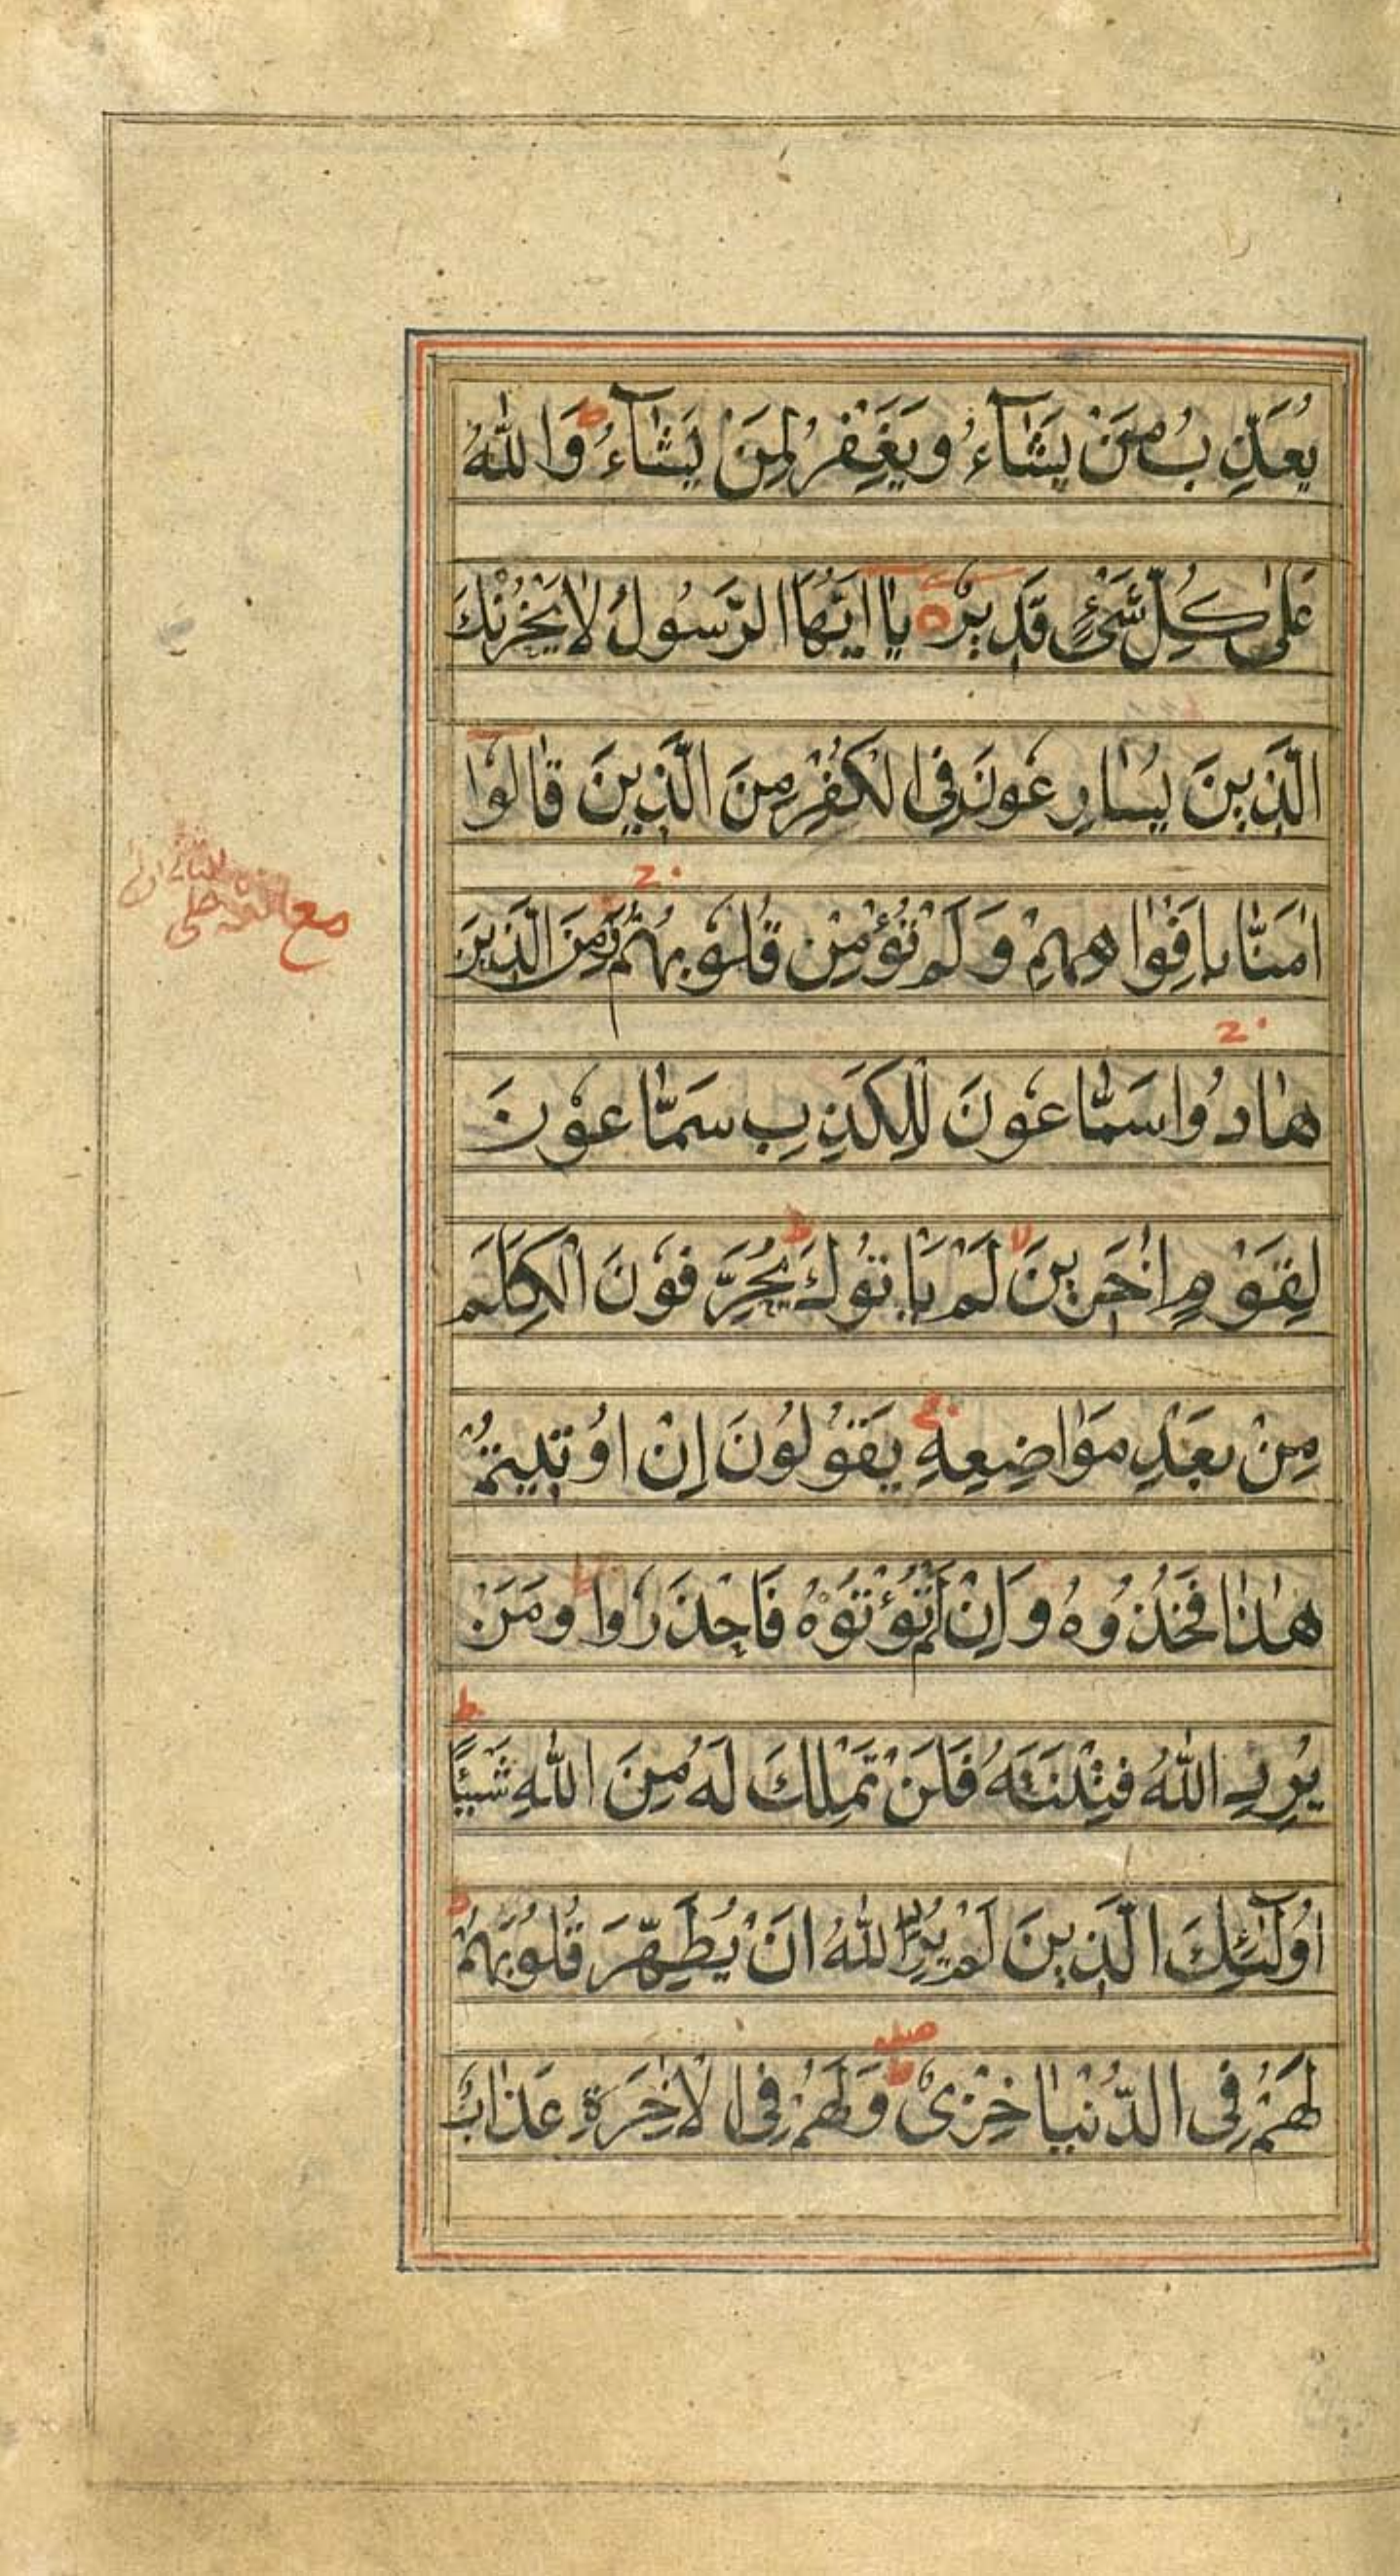 يُعَذِّبُ مَنْ يَشَآءُ وَيَغْفِرُ لِمَنْ يَشَآءُ ط وَاللّٰهُ
عَلٰى كُلِّ شَىْءٍ قَدِيْرٌ يٰا اَيُّهَا الرَّسُولُ لَا يَحْزُنْكَ
الَّذِينَ يُسٰارِعُونَ فِى الْكُفْرِ مِنَ الَّذِينَ قٰالُوْا
اٰمَنّٰا بِاَفْوٰاهِهِمْ وَلَمْ تُؤْمِنْ قُلُوْبُهُمْ وَمِنَ الَّذِينَ
هٰادُوا سَمّٰاعُوْنَ لِلْكَذِبِ سَمّٰاعُوْنَ
لِقَوْمٍ اٰخَرِينَ لا لَمْ يَاْتُوْكَ ط يُحَرِّفُوْنَ الْكَلِمَ
مِنْ بَعْدِ مَوٰاضِعِهِ يَقُوْلُوْنَ اِنْ اُوْتِيتُمْ
هٰذٰا فَخُذُوهُ وَاِنْ لَمْ تُؤْتَوْهُ فَاحْذَرُوْا ط وَمَنْ
يُرِدِ اللّٰهُ فِتْنَتَهُ فَلَنْ تَمْلِكَ لَهُ مِنَ اللّٰهِ شَيْئًا ط
اُولٰٓئِكَ الَّذِينَ لَمْ يُرِدِ اللّٰهُ اَنْ يُطَهِّرَ قُلُوْبَهُمْ ط
لَهُمْ فِى الدُّنْيٰا خِزْىٌ وَلَهُمْ فِى الْاٰخِرَةِ عَذٰابٌ